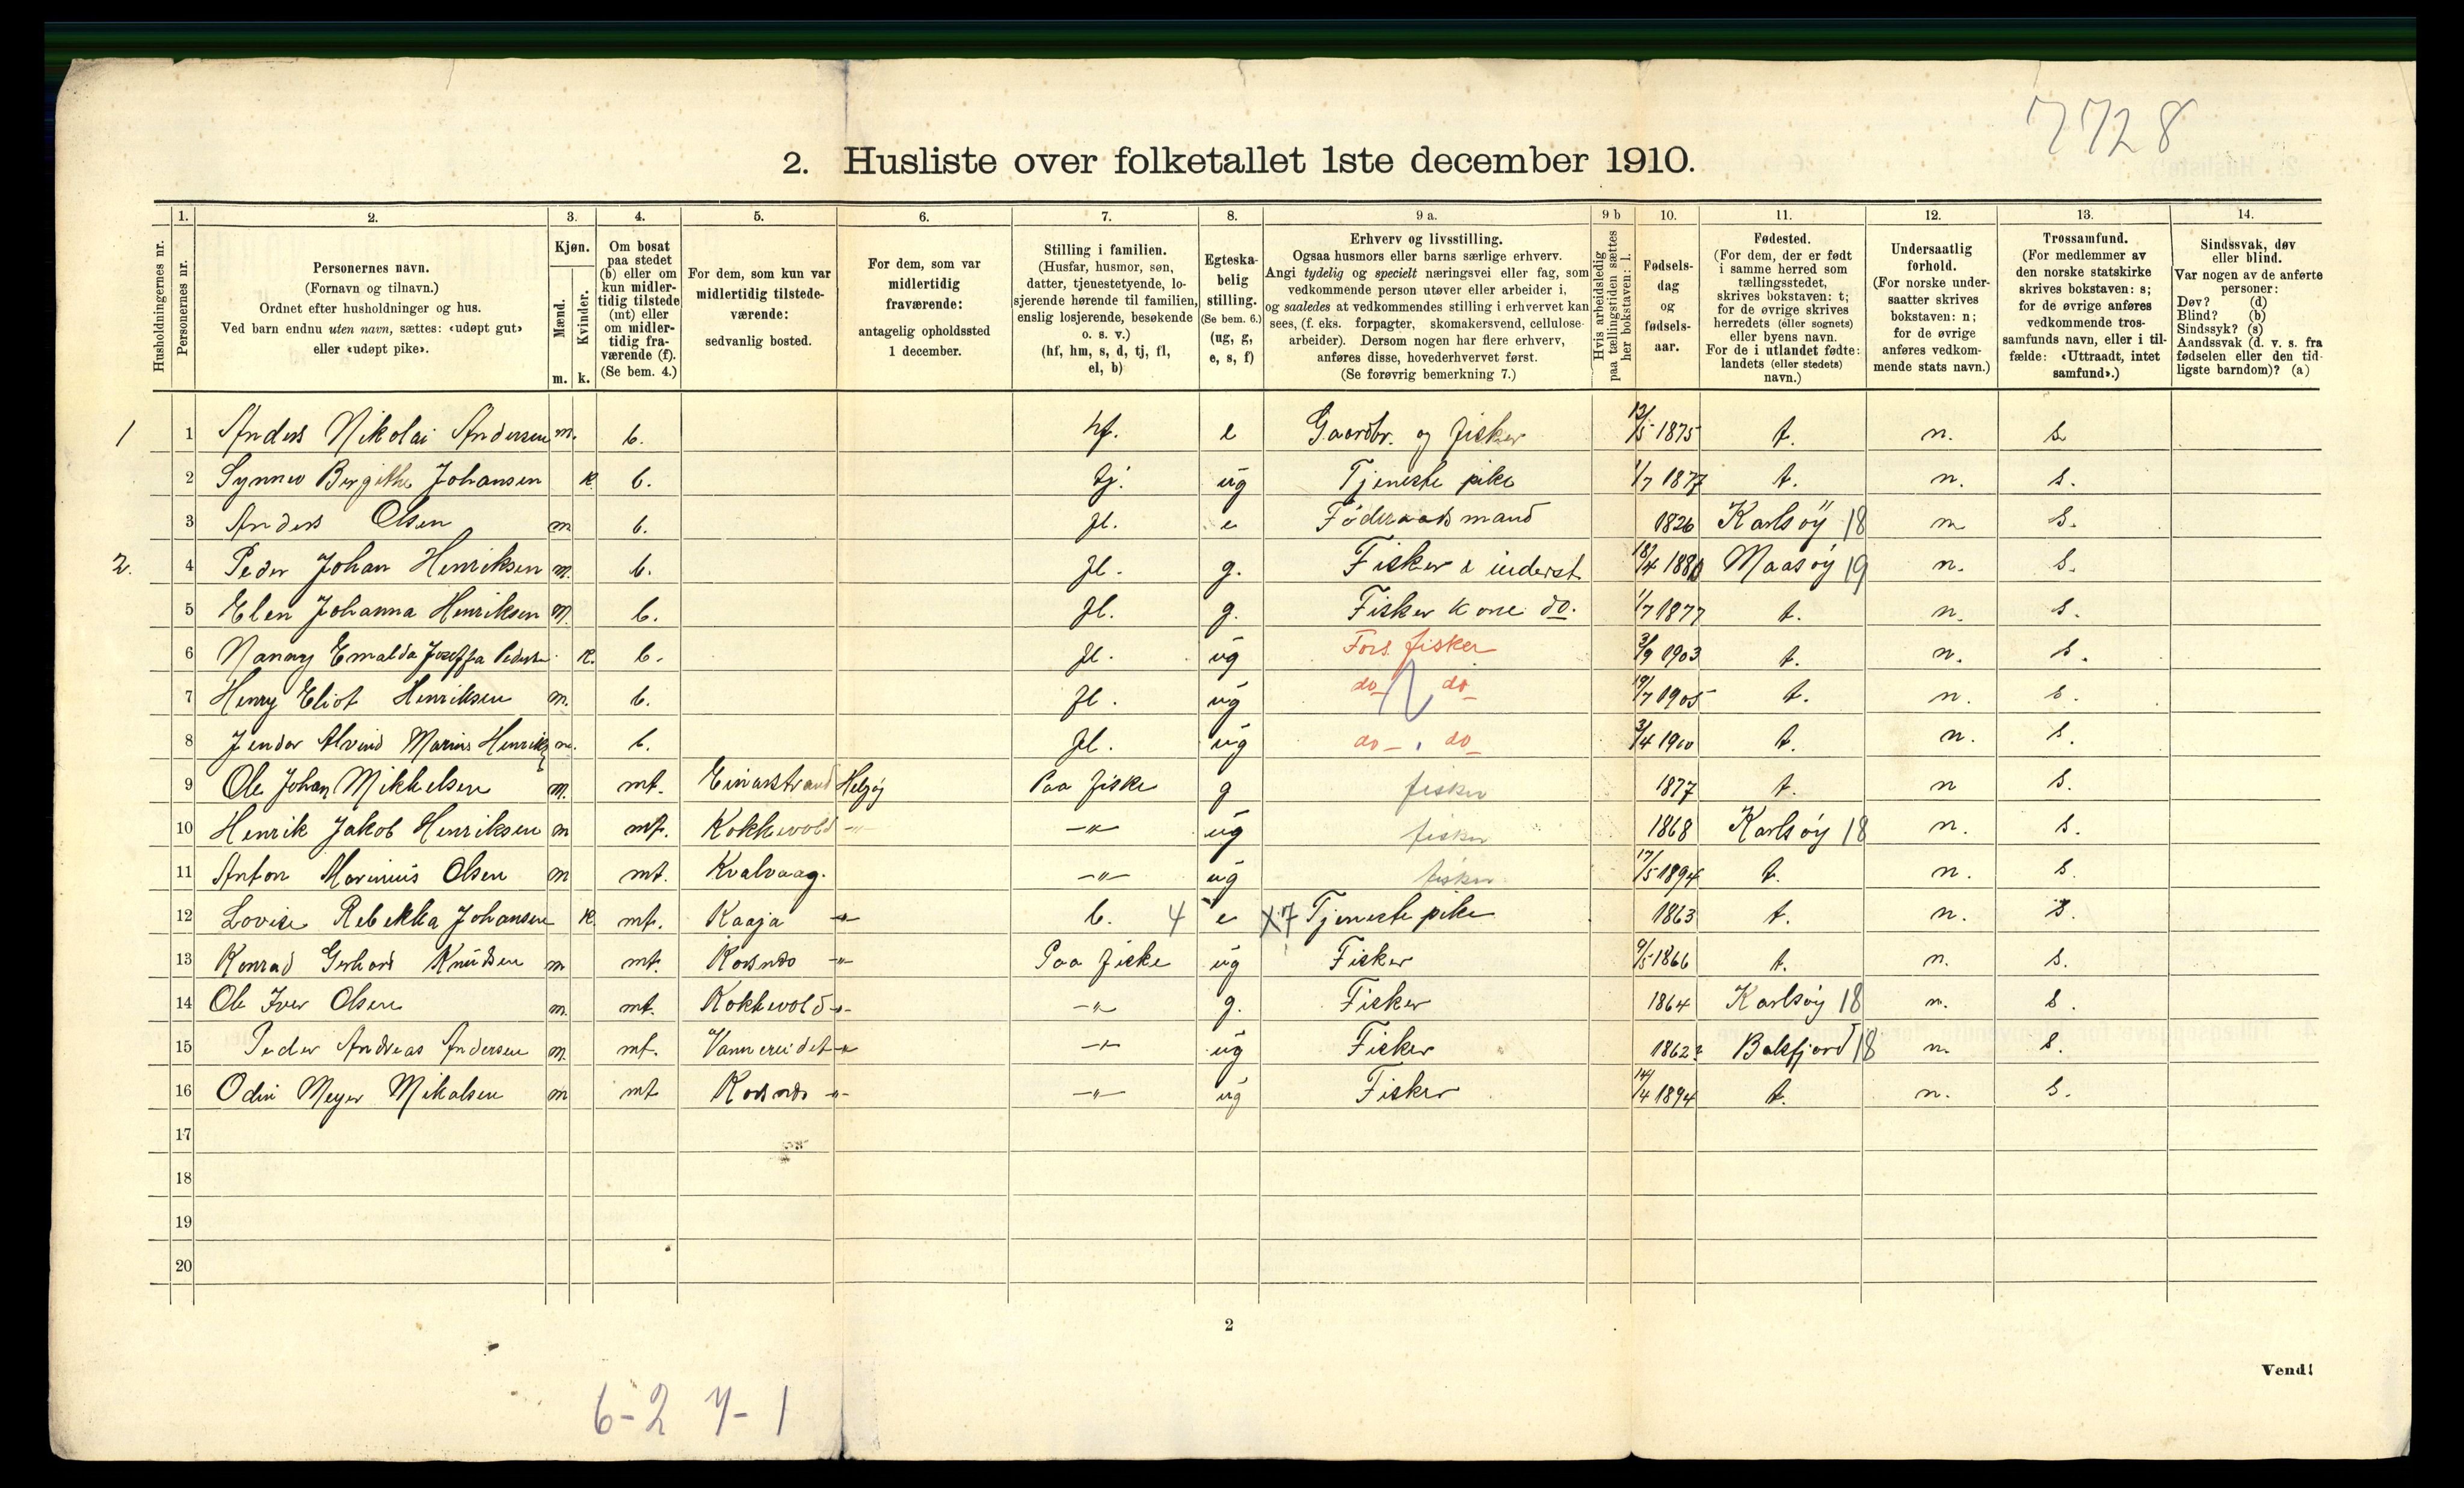 7728
2. Husliste over folketallet 1ste december 1910.
Husholdningernes nr.
1. Personernes nr.
2. Personernes navn. (Fornavn og tilnavn.) Ordnet efter husholdninger og hus. Ved barn endnu uten navn, sættes: «udøpt gut» eller «udøpt pike».
3. Kjøn. Mænd. m. Kvinder. k.
4. Om bosat paa stedet (b) eller om kun midlertidig tilstede (mt) eller om midlertidig fraværende (f). (Se bem. 4.)
5. For dem, som kun var midlertidig tilstedeværende: sedvanlig bosted.
6. For dem, som var midlertidig fraværende: antagelig opholdssted 1 december.
7. Stilling i familien. (Husfar, husmor, søn, datter, tjenestetyende, losjerende hørende til familien, enslig losjerende, besøkende o. s. v.) (hf, hm, s, d, tj, fl, el, b)
8. Egteskabelig stilling. (Se bem. 6.) (ug, g, e, s, f)
9 a. Erhverv og livsstilling. Ogsaa husmors eller barns særlige erhverv. Angi tydelig og specielt næringsvei eller fag, som vedkommende person utøver eller arbeider i, og saaledes at vedkommendes stilling i erhvervet kan sees, (f. eks. forpagter, skomakersvend, cellulosearbeider). Dersom nogen har flere erhverv, anføres disse, hovederhvervet først. (Se forøvrig bemerkning 7.)
9 b Hvis arbeidsledig paa tællingstiden sættes her bokstaven: l.
10. Fødselsdag og fødselsaar.
11. Fødested. (For dem, der er født i samme herred som tællingsstedet, skrives bokstaven: t; for de øvrige skrives herredets (eller sognets) eller byens navn. For de i utlandet fødte: landets (eller stedets) navn.)
12. Undersaatlig forhold. (For norske undersaatter skrives bokstaven: n; for de øvrige anføres vedkommende stats navn.)
13. Trossamfund. (For medlemmer av den norske statskirke skrives bokstaven: s; for de øvrige anføres vedkommende trossamfunds navn, eller i tilfælde: «Uttraadt, intet samfund».)
14. Sindssvak, døv eller blind. Var nogen av de anførte personer: Døv? (d) Blind? (b) Sindssyk? (s) Aandssvak (d. v. s. fra fødselen eller den tidligste barndom)? (a)
1 1 Anders Nikolai Andersen m. b. hf. e Gaardbr. og fisker 12/5 1875 t. n. s.
2 Synnev Bergithe Johansen k. b. tj. ug Tjeneste pike 1/7 1877 t. n. s.
3 Anders Olsen m b. fl. e Føderaads mand 1826 Karlsöy 18 n s.
2. 4 Peder Johan Henriksen m. b. fl. g. Fisker & inderst 18/4 1880 Maasöy 19 n. s.
5 Elen Johanna Henriksen m. b. fl. g. Fisker kone do. 1/7 1877 t. n. s.
6 Nanny Emalda Joseffa k. b. fl. ug Fors. fisker 3/9 1903 t. n. s.
7 Henry Eliot Henriksen m. b. fl. ug do do 19/7 1905 t. n. s.
8 Alvind Marius m. b. fl. ug do do 3/4 1910 t. n. s.
9 Ole Johan Mikkelsen m. mt. Einarstrand Helgøy Paa fiske g fisker 1877 t. n s.
10 Henrik Jakob Henriksen m mt. Kokkevold -"- -"- ug fisker 1868 Karlsöy 18 n. s.
11 Anton Marinius Olsen m mt. Kvalvaag. -"- ug fisker 17/5 1894 t. n. s.
12 Lovise Rebekka Johansen k. mt. Kaaja -"- b. 4 e X7 Tjeneste pike 1863 t. n. s.
13 Konrad Gerhard Knüdsen m mt. -"- Paa fiske ug Fisker 9/5 1866 t. n. s.
14 Ole Iver Olsen m. mt. Kokkevold -"- -"- g. Fisker 1864 Karlsöy 18 n. s.
15 Peder Andreas Andersen m. mt. Vannereidet -"- -"- ug Fisker 1862 Balsfjord 18 n. s.
16 Odin Meyer Mikalsen m mt -"- -"- ug Fisker 14/4 1894 t. n. s.
17
18
19
20
2
Vend!
6-2 7-1